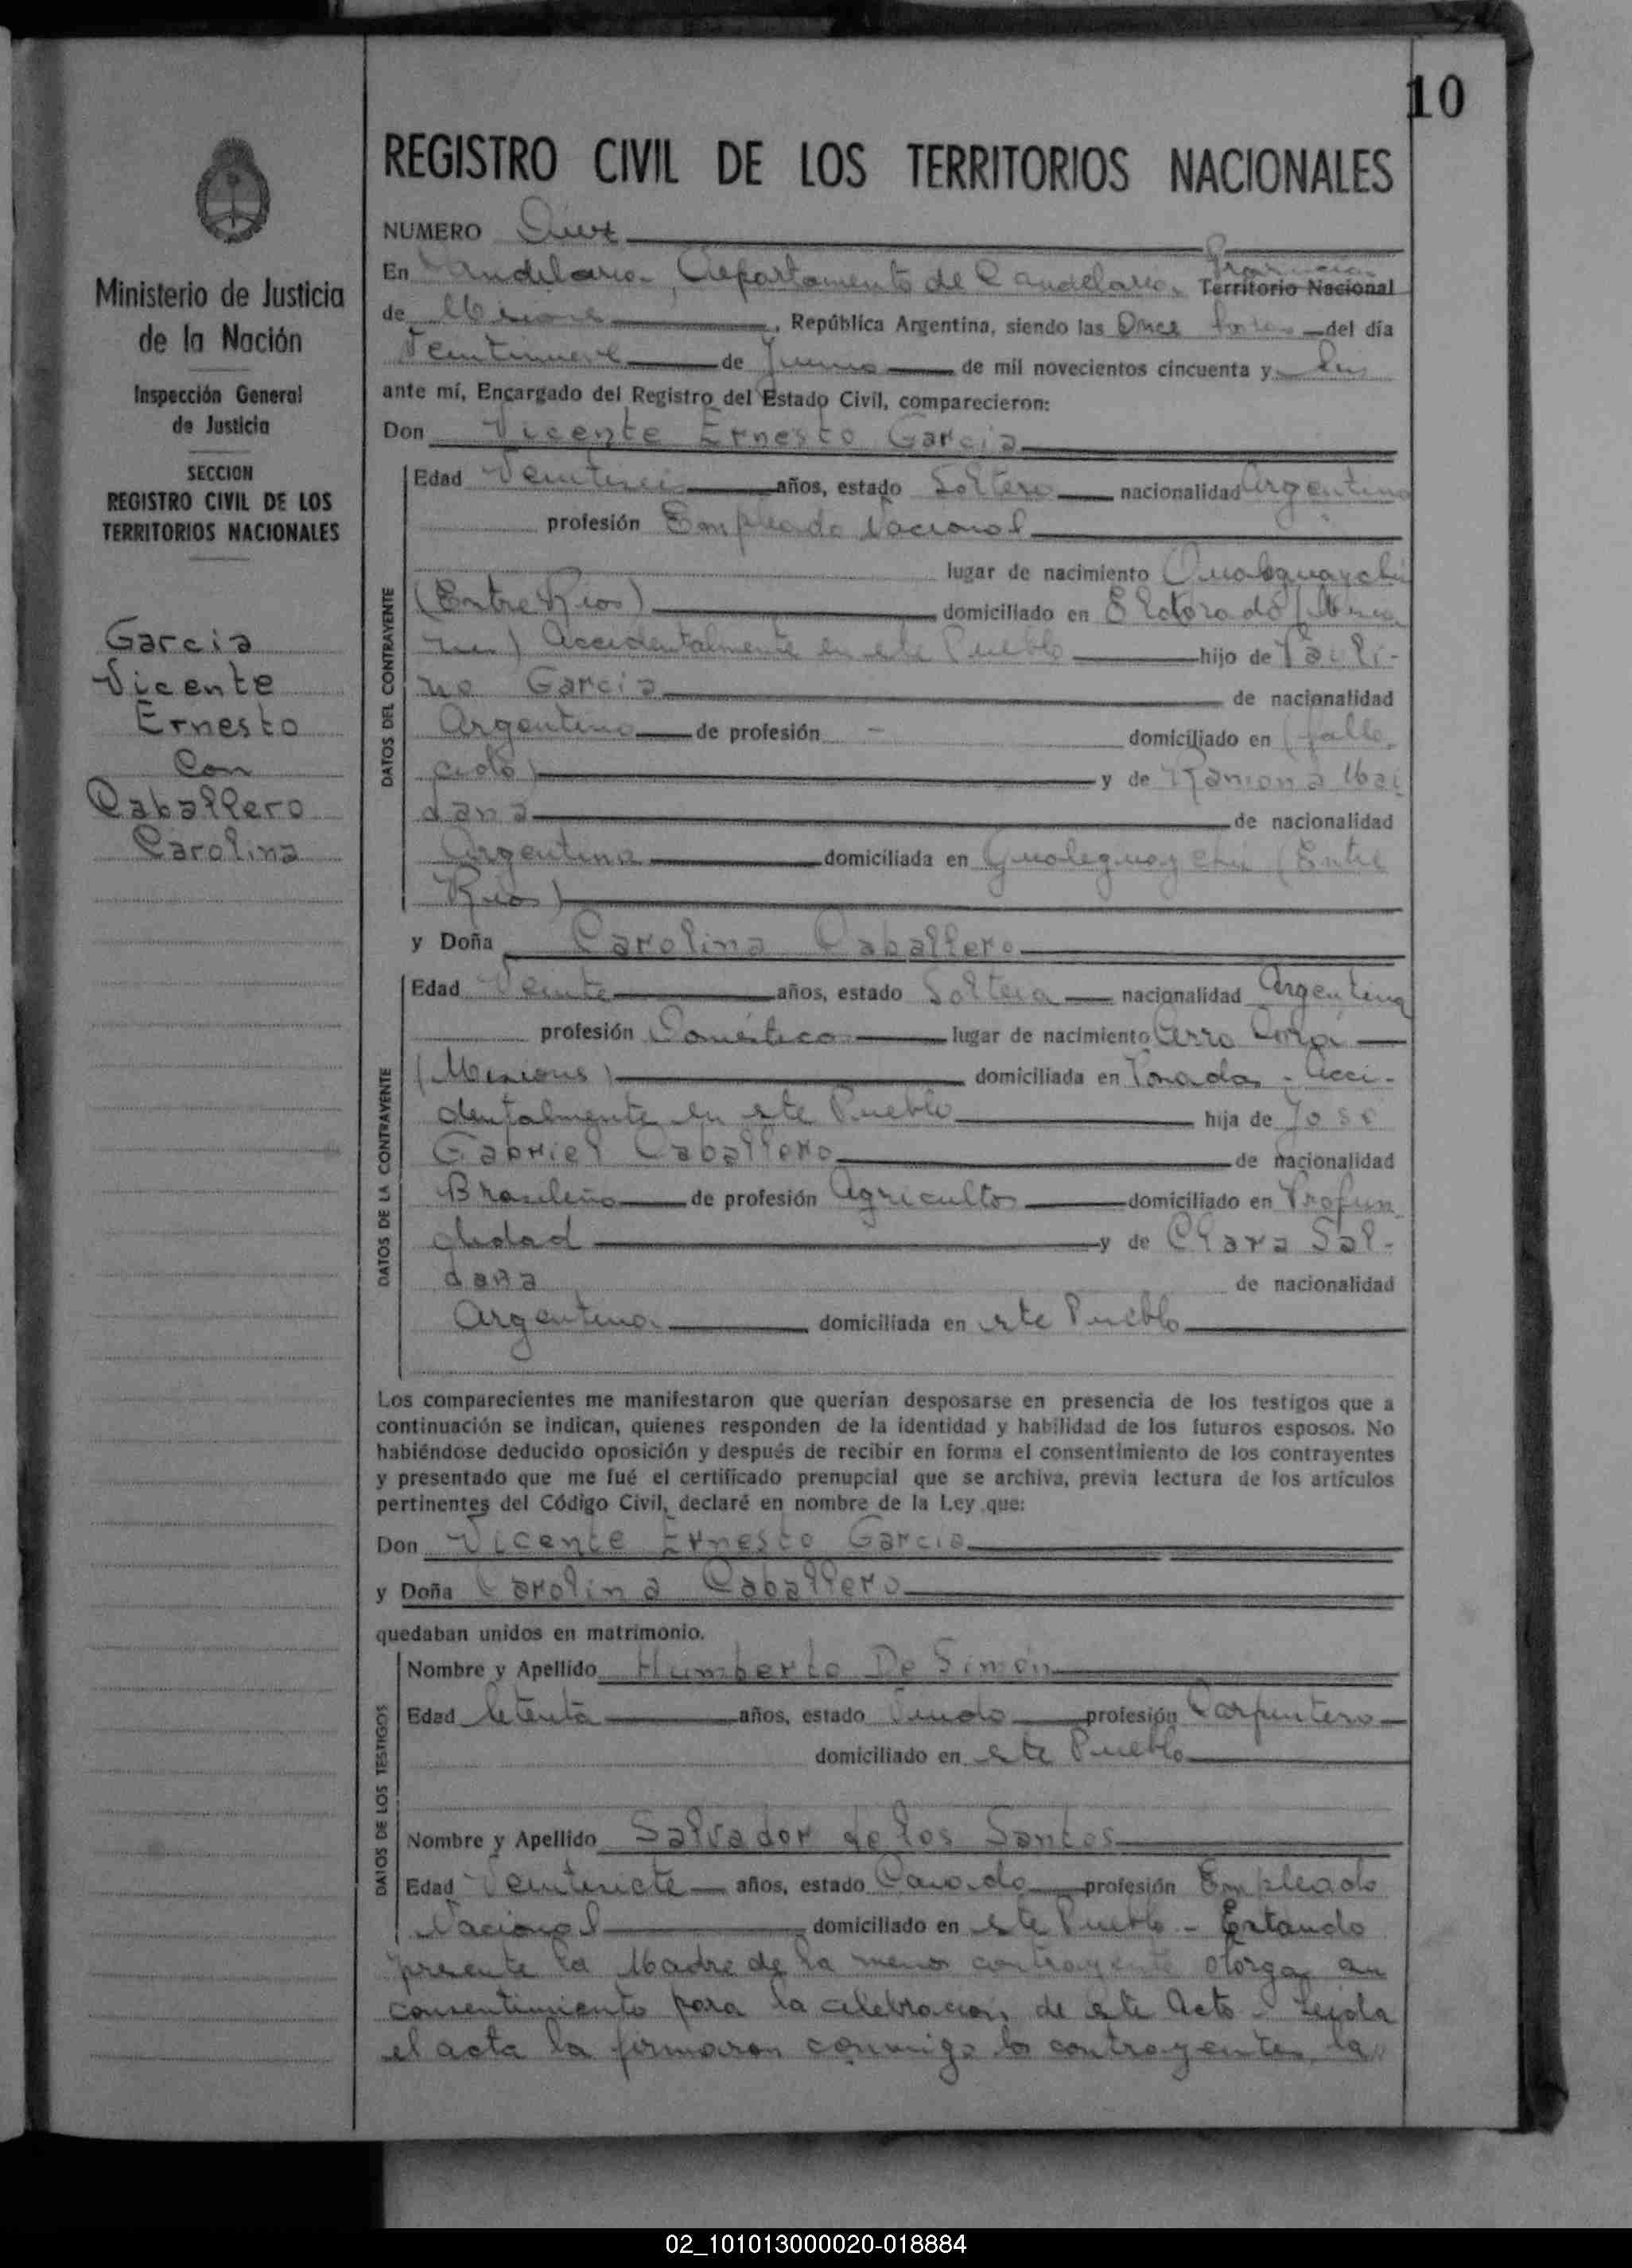 10
REGISTRO CIVIL DE LOS TERRITORIOS NACIONALES
Ministerio de Justicia
de la Nación
Inspección General
de Justicia
SECCION
REGISTRO CIVIL DE LOS
TERRITORIOS NACIONALES
Garcia
Vicente
Ernesto
Con
Caballero
Carolina
NUMERO Diez
Provincia
En Candelaria, Departamento de Candelaria, Territorio Nacional
de Misiones, República Argentina, siendo las Once horas del día
Veintinueve de Junio de mil novecientos cincuenta y Seis
ante mí, Encargado del Registro del Estado Civil, comparecieron:
Don Vicente Ernesto Garcia
DATOS DEL CONTRAYENTE
Edad Veintiseis años, estado Soltero nacionalidad Argentina
profesión Empleado Nacional
lugar de nacimiento Gualeguaychú
(Entre Rios) domiciliado en Eldorado (Misio
nes) Accidentalmente en este Pueblo hijo de Pauli-
no Garcia de nacionalidad
Argentino de profesión - domiciliado en (falle
cido) y de Ramona Mai
dana de nacionalidad
Argentina domiciliada en Gualeguaychú (Entre
Rios)
y Doña Carolina Caballero
DATOS DE LA CONTRAYENTE
Edad Veinte años, estado Soltera nacionalidad Argentina
profesión Doméstica lugar de nacimiento Cerro Corá
(Misiones) domiciliada en Posadas - Acci-
dentalmente en este Pueblo hija de José
Gabriel Caballero de nacionalidad
Brasileño de profesión Agricultor domiciliado en Profun
didad y de Clara Sal-
daña de nacionalidad
Argentina domiciliada en este Pueblo
Los comparecientes me manifestaron que querían desposarse en presencia de los testigos que a
continuación se indican, quienes responden de la identidad y habilidad de los futuros esposos. No
habiéndose deducido oposición y después de recibir en forma el consentimiento de los contrayentes
y presentado que me fué el certificado prenupcial que se archiva, previa lectura de los artículos
pertinentes del Código Civil, declaré en nombre de la Ley que:
Don Vicente Ernesto Garcia
y Doña Carolina Caballero
quedaban unidos en matrimonio.
DATOS DE LOS TESTIGOS
Nombre y Apellido Humberto De Simón
Edad Setenta años, estado Viudo profesión Carpintero
domiciliado en este Pueblo
Nombre y Apellido Salvador de los Santos
Edad Veintisiete años, estado Casado profesión Empleado
Nacional domiciliado en este Pueblo - Estando
presente la Madre de la menor contrayente otorga su
consentimiento para la celebración de este Acto - Leida
el acta la firmaron conmigo los contrayentes, la
02_101013000020-018884